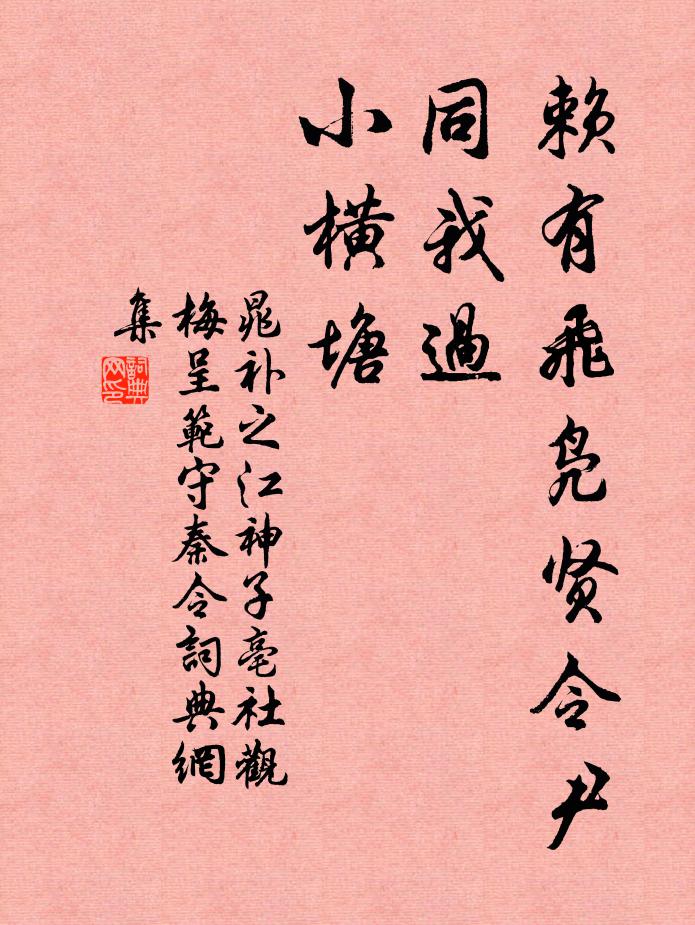 赖有飛凫贤令尹
同我過
小橫塘
晁补之江神子亳社觀
梅呈範守秦令詞典網
集
詞典
网印